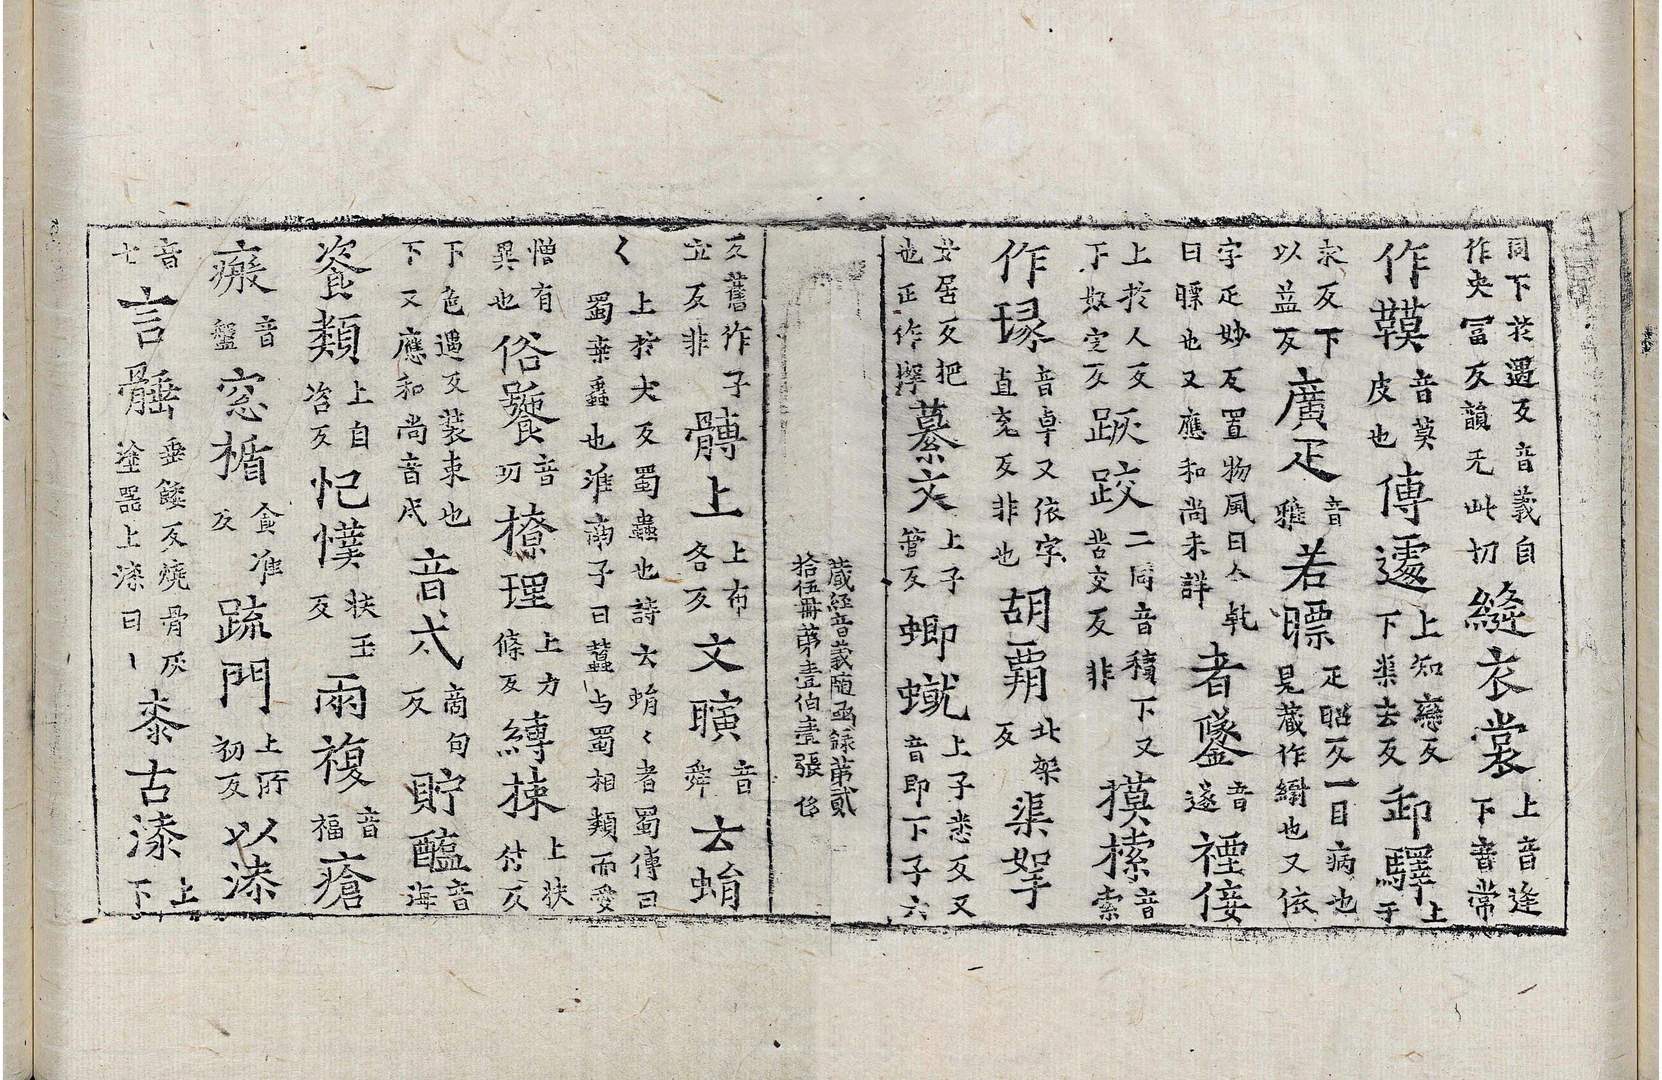 同下於遇反音義自作央冨反韻无此切縫衣裳上音逢下音常
作鞿音莫皮也傳遽上知戀反下渠去反卸驛上于
求反下以益反廣疋音雅若瞟疋昭反一目病也見藏作𦌊也又依
字疋妙反置物風日令乹曰瞟也又應和尚未詳者鐆音遂禋倿
上於人反下奴定反踿跤二同音積下又苦交反非摸㯿音索
作瑑音卓又依字直兖反非也胡覇北架反渠挐
女居反把也正作拏蓁文上子管反蝍蠘上子悉反又音即下子六
藏經音義隨函録第貳拾伍冊第壹伯壹張 侈
反舊作子立反非髆上上布各反文瞚音舜云蜎
〱上於犬反蜀蟲也詩云蜎〱者蜀傳曰蜀桒蟲也淮南子曰蠶与蜀相類而愛
憎有異也俗饕音叨撩理上力條反縳捒上扶付反
下色遇反装束也下又應和尚音戍音弍商句反貯醢音海
餈類上自咨反𢗏懽扶壬反兩複音福瘡
瘢音盤窓楯食准反䟽門上所初反以漆
音七言𩩲垂䭔反燒骨灰塗器上漆曰〱桼古漆上下